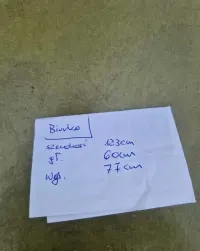 Biurko
szerokość 123cm
gł. 60cm
wys. 77cm